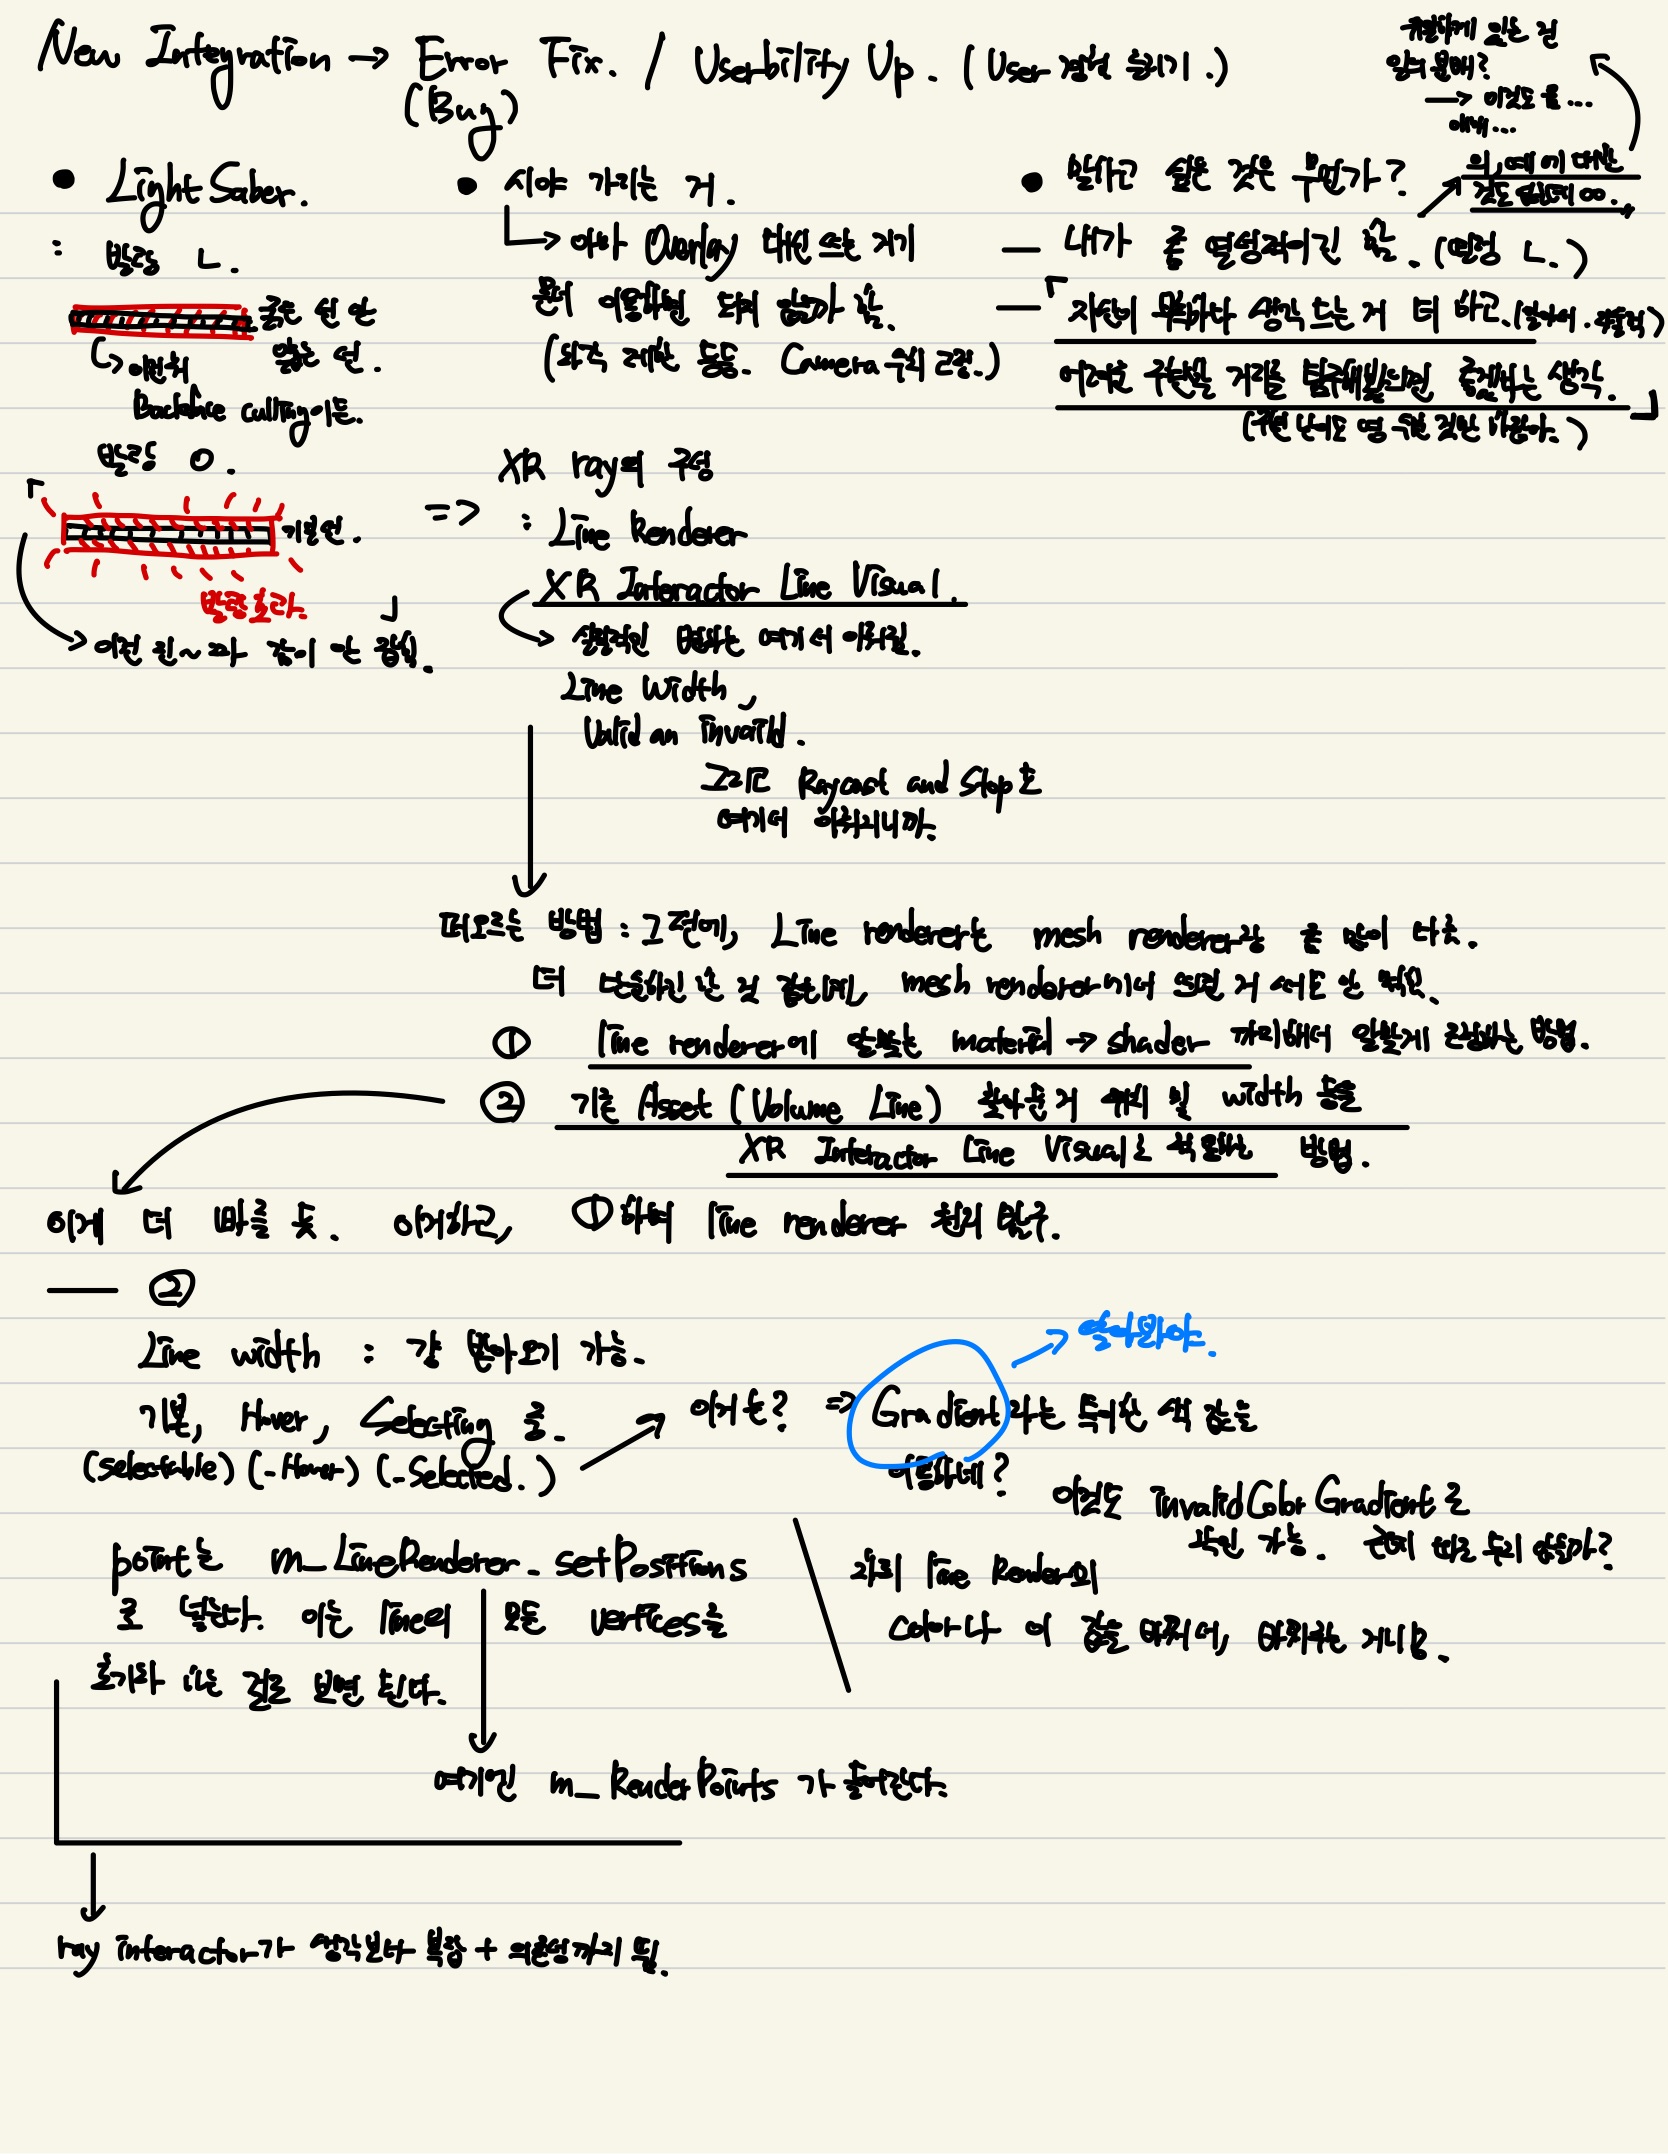 New Integration → Error Fix. / Userbility Up. (User 경험 늘리기.)
(Bug)
있는 걸
일의 문제?
→ 이것도 좀...
애매...
• Light Saber.
: 발광 ㄴ.
굵은 선 안
얇은 선.
↳ 이런 취
Backface culling이든.
발광 O.
「
기본선.
발광효과.
」
→ 이런 긴~ 안 잡힘.
• 시야 가리는 거.
↳ 아마 Overlay 대신 쓰는 거기
문서 이용하면 되지 않을까 함.
(시각 제한 등등. Camera 위치 고정.)
• 말하고 싶은 것은 무언가?
의, 예에 대한
것도 담는데 ∞.
— 내가 좀 열성적이긴 함. (멀렁 ㄴ.)
— 「 자신이 부족하다 생각 드는 거 더 하고.
어려운 구현할 거리를 탐구해봤으면 좋겠다는 생각. 」
(구현 난이도 영
=> XR ray의 구성
: Line Renderer
XR Interactor Line Visual.
→ 실질적인 변화는 여기서 이뤄짐.
Line Width,
Valid an invaild.
그리고 Raycast and Stop도
여기서 이뤄지니까.
떠오르는 방법 : 그 전에, Line renderer는 mesh renderer랑 좀 많이 다르.
더 단순하긴 한 것 같은데, mesh renderer에서 쓰던 거 써도 안 먹힘.
① line renderer에 알맞는 material → shader 까지 해서 알맞게 조정하는 방법.
② 기존 Asset (Volume Line) 찾아둔 거 위치 및 width 등을
XR Interactor Line Visual로 적용하는 방법.
이게 더 빠를 듯. 이거하고, ①하며 line renderer 원리 탐구.
— ②
Line width : 걍 받아오기 가능.
기본, Hover, Selecting 중.
(selectable) (-Hover) (-Selected.)
이거는? => Gradient라는 특이한 색 값을
이용하네?
→ 알아봐야.
이것도 invalidColorGradient로
확인 가능. 근데 따로 두지 않을까?
point는 m_LineRenderer.setPositions
로 넣는다. 이는 line의 모든 vertices를
초기화 하는 걸로 보면 된다.
line Renderer의
Color나 이 값을 바꿔서, 바꿔주는 거니깐.
여기엔 m_RenderPoints 가 들어간다.
ray interactor가 생각보다 복잡 + 의존성까지 띔.